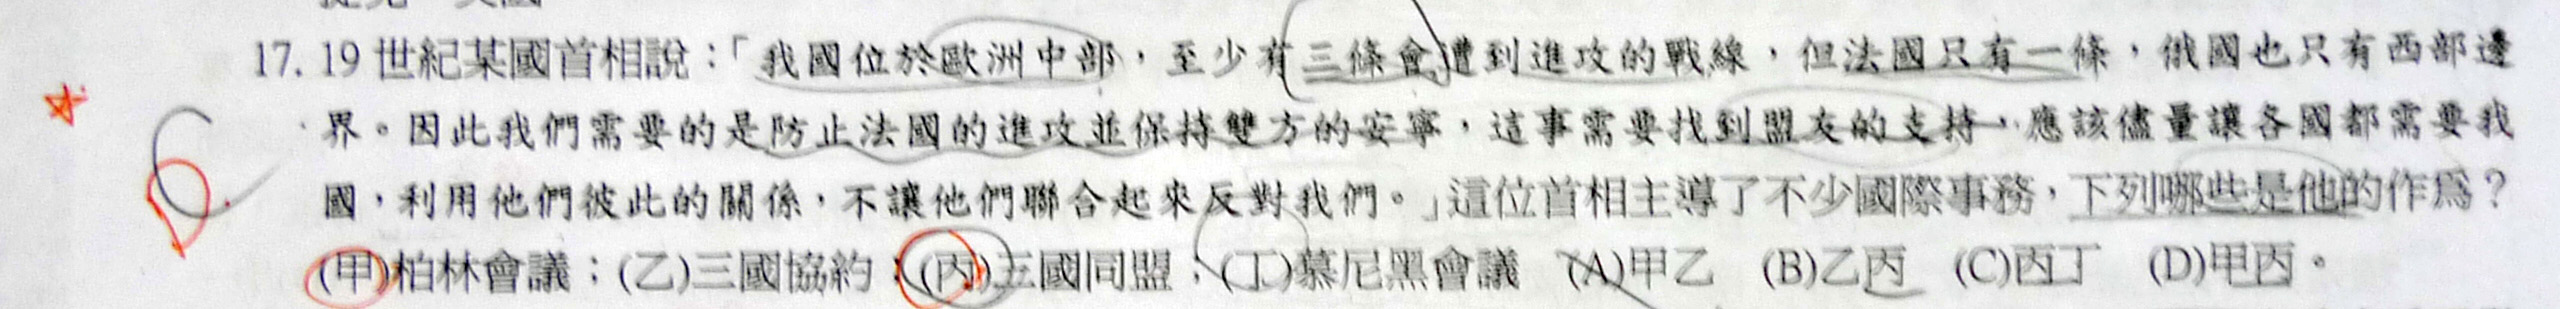 17. 19世紀某國首相說：「我國位於歐洲中部，至少有三條會遭到進攻的戰線，但法國只有一條，俄國也只有西部邊
界。因此我們需要的是防止法國的進攻並保持雙方的安寧，這事需要找到盟友的支持，應該儘量讓各國都需要我
國，利用他們彼此的關係，不讓他們聯合起來反對我們。」這位首相主導了不少國際事務，下列哪些是他的作為？
(甲)柏林會議；(乙)三國協約；(丙)三國同盟；(丁)慕尼黑會議 (A)甲乙 (B)乙丙 (C)丙丁 (D)甲丙。